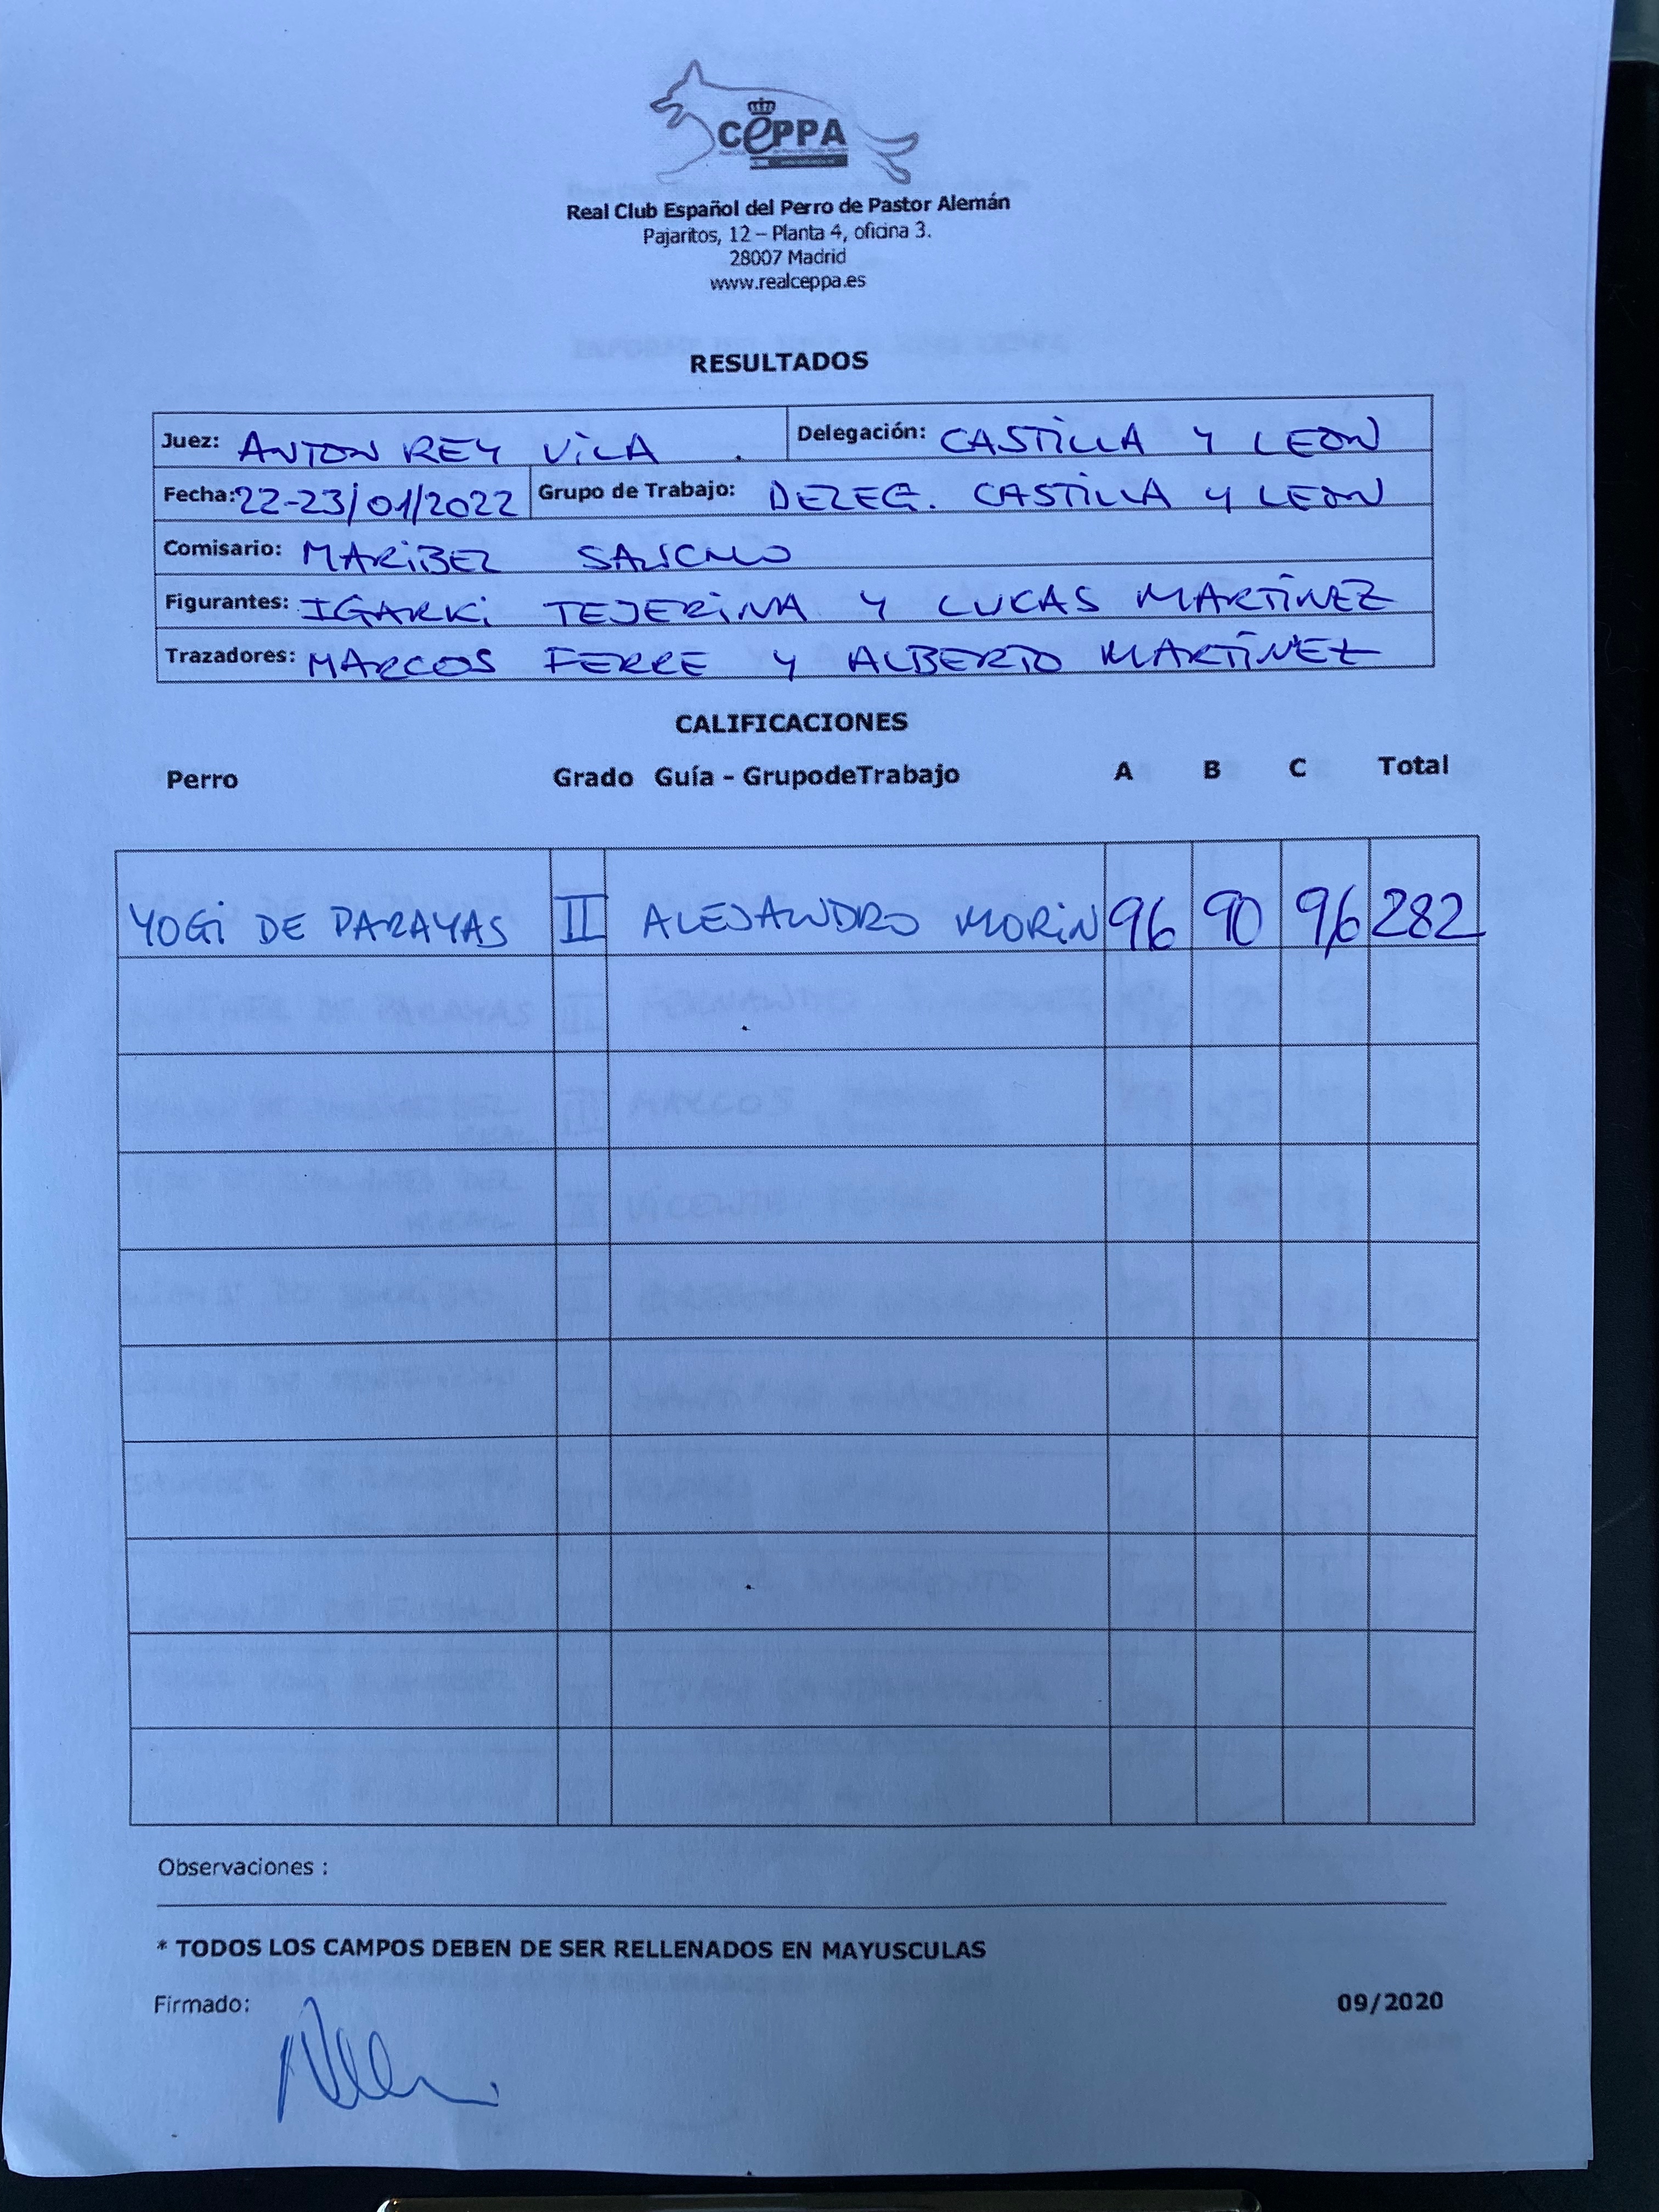 CEPPA
Real Club Español del Perro de Pastor Alemán
Pajaritos, 12 – Planta 4, oficina 3.
28007 Madrid
www.realceppa.es
RESULTADOS
Juez: ANTON REY VILA . Delegación: CASTILLA Y LEON
Fecha: 22-23/01/2022 Grupo de Trabajo: DELEG. CASTILLA Y LEON
Comisario: MARIBEL SANCHO
Figurantes: IGARKI TEJERINA Y LUCAS MARTÍNEZ
Trazadores: MARCOS FERRE Y ALBERTO MARTÍNEZ
CALIFICACIONES
Perro Grado Guía - GrupodeTrabajo A B C Total
YOGI DE PARAYAS II ALEJANDRO MORIN 96 90 96 282
Observaciones :
* TODOS LOS CAMPOS DEBEN DE SER RELLENADOS EN MAYUSCULAS
Firmado: 09/2020